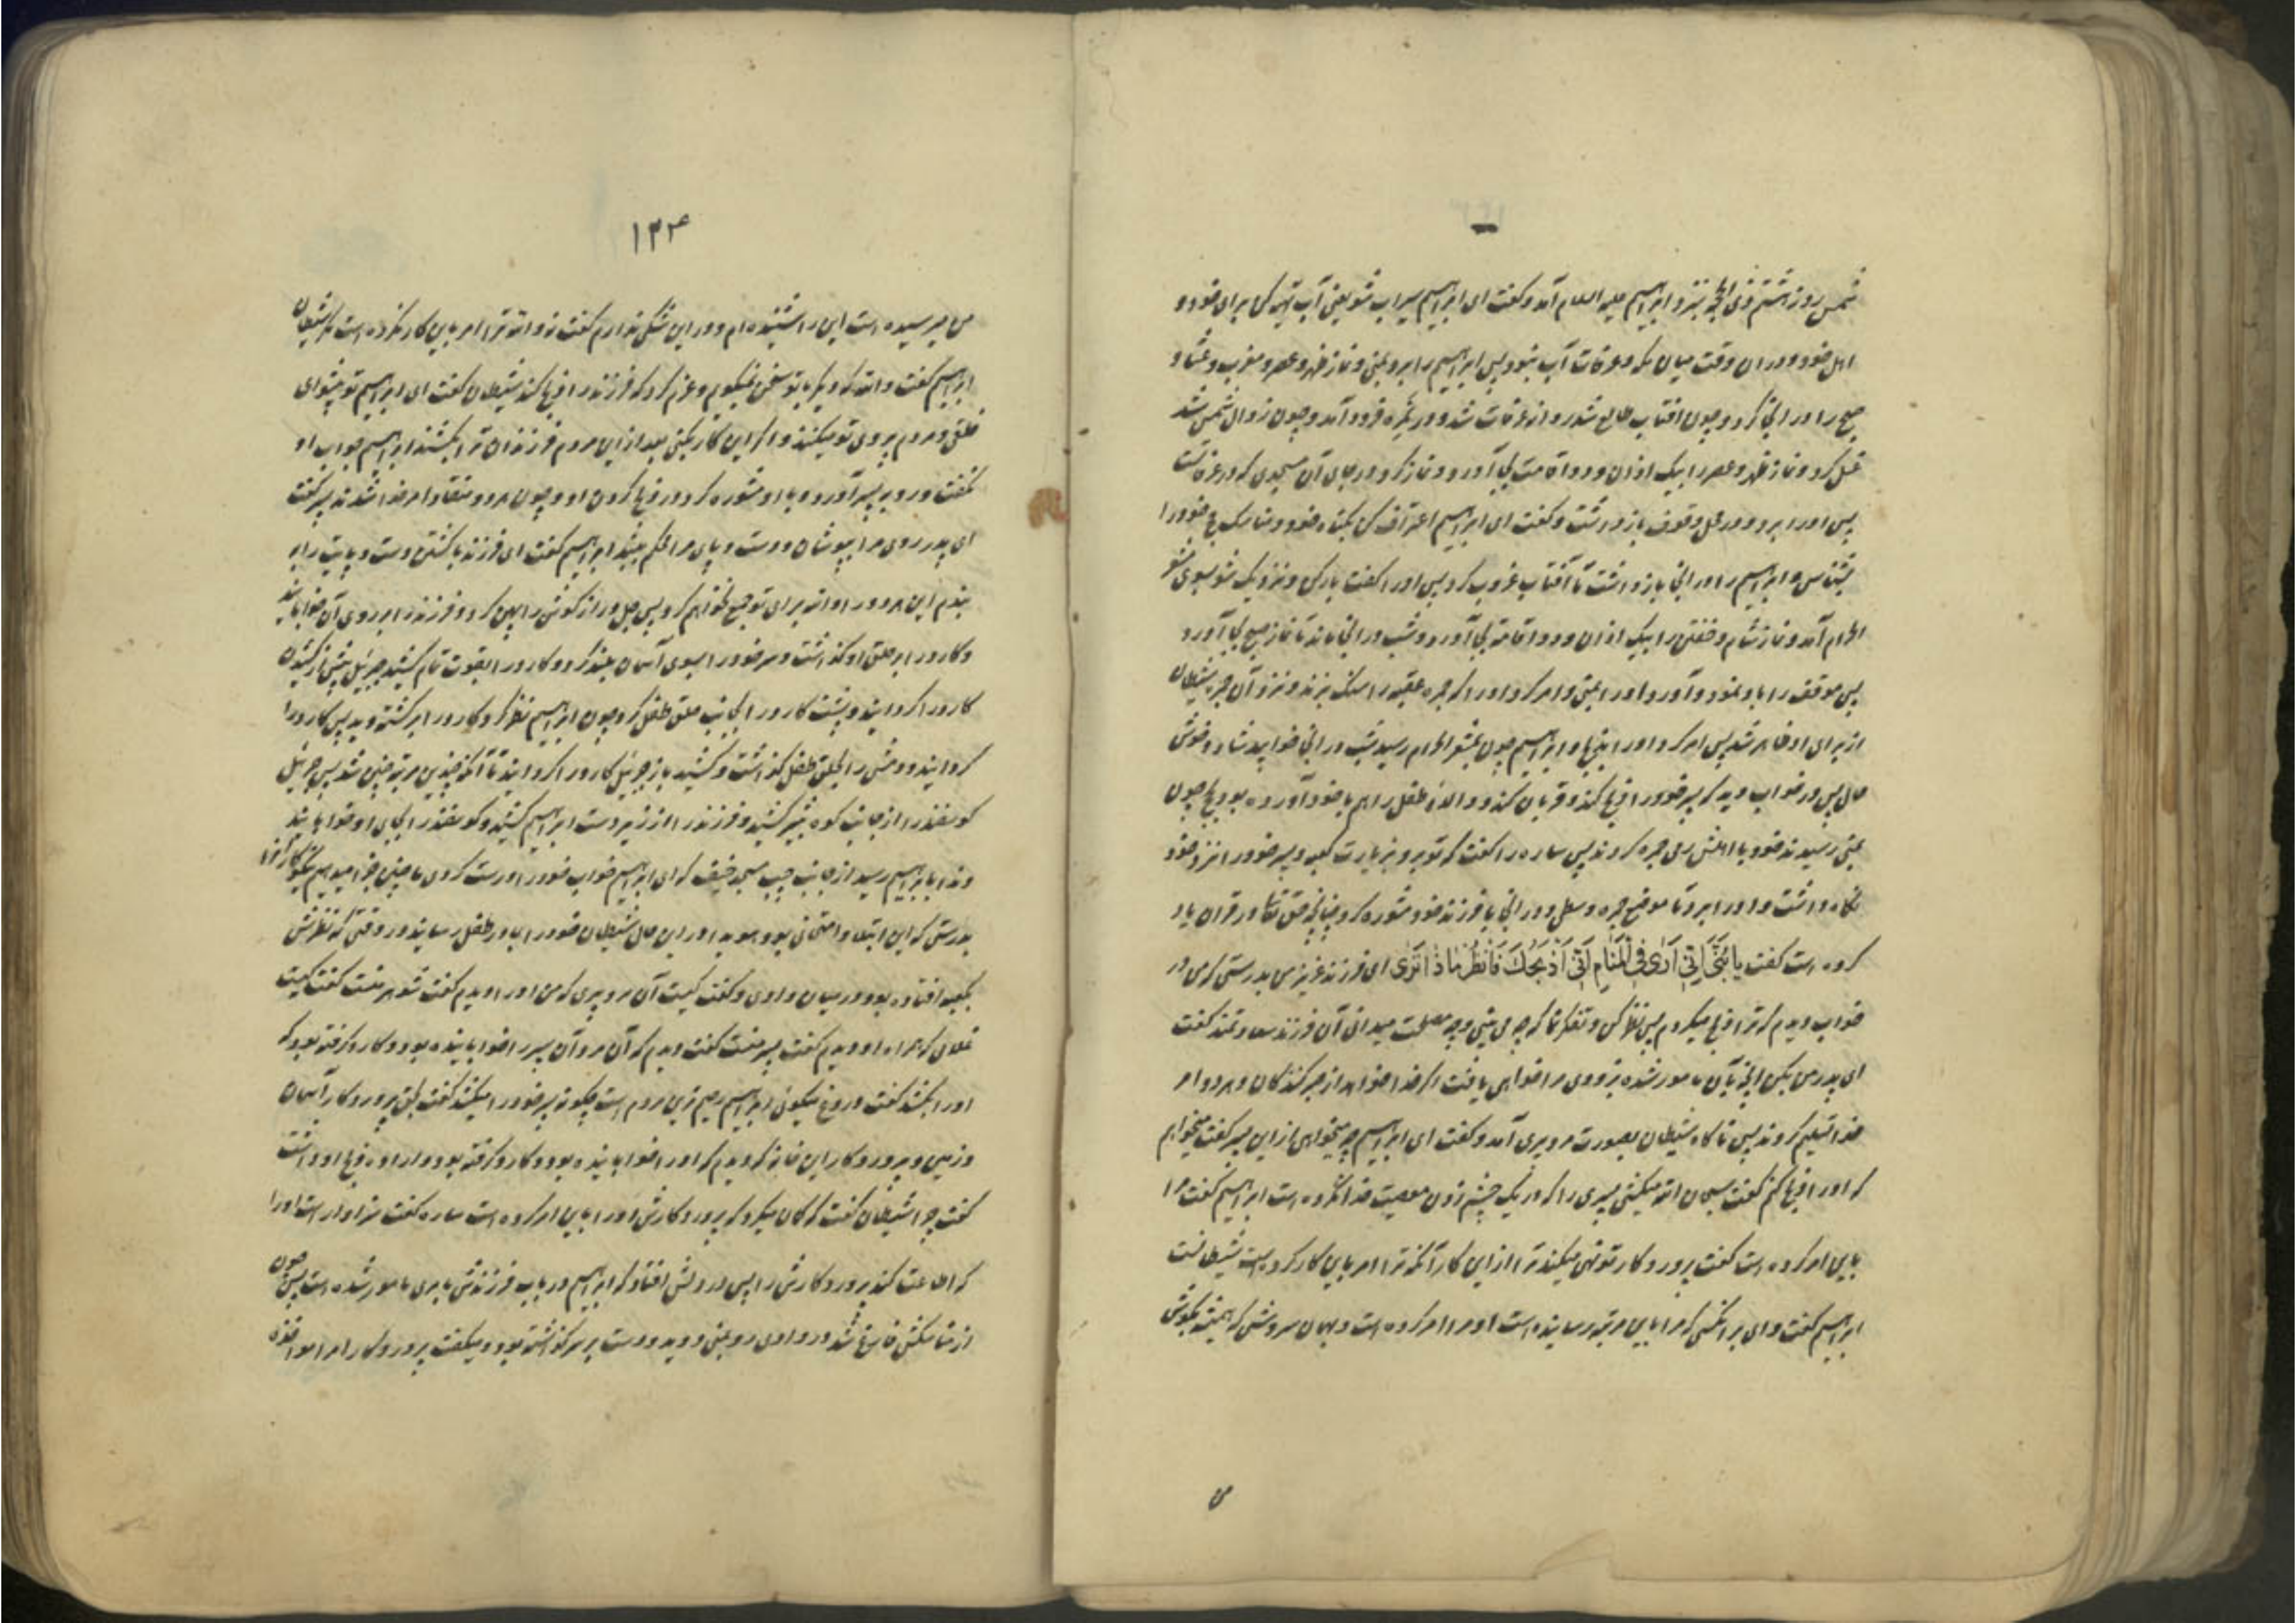 شمس روز هشتم ذی الحجه بنزد ابراهیم علیه السلام آمد و گفت ای ابراهیم سیراب شو یعنی آب تهیه کن برای خود و
اهل خود و در ان وقت میان مکه و عرفات آب نبود پس ابراهیم را برد بمنی و نماز ظهر و عصر و مغرب و عشا و
صبح را در انجا کرد و چون افتاب طالع شد روانه عرفات شد و در نمره فرود آمد و چون زوال شمس شد
غسل کرد و نماز ظهر و عصر را بیک اذان و دو اقامت بجا آورد و نماز کرد در جای آن مسجدی که در عرفاتست
پس او را برد و در محل وقوف بازداشت و گفت ای ابراهیم اعتراف کن بگناه خود و مناسک حج خود را
بشناس و ابراهیم را در انجا بازداشت تا آفتاب غروب کرد پس او را گفت بار کن و نزدیک شو بسوی مشعر
الحرام آمد و نماز شام و خفتن را بیک اذان و دو اقامة بجا آورد و شب در انجا ماند تا نماز صبح بجا آورد
پس موقف را باو نمود و آورد او را بمنی و امر کرد او را که جمره عقبه را سنگ بزند و نزد آن جمره شیطان
از برای او ظاهر شد پس امر کرد او را بذبح و ابراهیم چون بمشعر الحرام رسید شب در انجا خوابید شاد و خوش
حال پس در خواب دید که پسر خود را ذبح کند و قربان کند و والدهٔ طفل را هم با خود آورده بود بحج چون
بمنی رسیدند خود با اهلش رمی جمره کردند پس ساره را گفت که تو برو بزیارت کعبه و پسر خود را نزد خود
نگاه داشت و او را برد تا موضع جمره وسطی و در انجا با فرزند خود مشوره کرد چنانچه حق تعالی در قران یاد
کرده است گفت یا بُنَیَّ اِنّی اَرٰی فِی الْمَنامِ اَنّی اَذْبَحُکَ فَانْظُرْ ماذا تَرٰی ای فرزند عزیز من بدرستی که من در
خواب دیدم که ترا ذبح میکردم پس نظر کن و تفکر نما که چه می بینی و چه مصلحت میدانی آن فرزند سعادتمند گفت
ای پدر من بکن انچه بآن مامور شده بزودی مرا خواهی یافت اگر خدا خواهد از صبر کنندگان و هر دو امر
خدا تسلیم کردند پس ناگاه شیطان بصورت مرد پیری آمد و گفت ای ابراهیم چه میخواهی از این پسر گفت میخواهم
که او را ذبح کنم گفت سبحان الله میکشی پسری را که در یک چشم زدن معصیت خدا نکرده است ابراهیم گفت خدا مرا
باین امر کرده است گفت پرورد کار تو نهی میکند ترا از این کار آنکه ترا امر باین کار کرده است شیطانست
ابراهیم گفت وای بر تو آنکسی که مرا باین مرتبه رسانیده است او مرا امر کرده است و بهمان سروشی که همیشه بگوش
من
۱۲۴
من میرسیده است این را شنیده ام و در این شکی ندارم گفت نه والله ترا امر باین کار نکرده است مگر شیطان
ابراهیم گفت والله که دیگر با تو سخن نمیگویم و عزم کرد که فرزند را ذبح کند شیطان گفت ای ابراهیم تو پیشوای
خلقی و مردم پیروی تو میکنند و اگر این کار بکنی بعد از این مردم فرزندان ترا بکشند ابراهیم جواب او
نگفت و رو به پسر آورد و با او مشوره کرد در ذبح کردن او و چون هر دو منقاد امر خدا شدند پسر گفت
ای پدر روی مرا بپوشان و دست و پای مرا محکم ببند ابراهیم گفت ای فرزند با کشتن دست و پایت را به
بندم این هر دو را والله برای تو جمع نخواهم کرد پس جل دراز گوش را پهن کرد و فرزند را بر روی آن خوابانید
و کارد را بر حلق او گذاشت و سر خود را بسوی آسمان بلند کرد و کارد را بقوت تمام کشید جبرئیل پیش از کشیدن
کارد را گردانید و پشت کارد را بجانب حلق طفل کرد چون ابراهیم نظر کرد کارد را بر گشته دید پس کارد را
گردانید و دمش را بحلق طفل گذاشت و کشید باز جبرئیل کارد را گردانید تا آنکه چندین مرتبه چنین شد پس جبرئیل
گوسفند را از جانب کوه ثبیر کشید و فرزند را از زیر دست ابراهیم کشید و گوسفند را بجای او خوابانید
و ندا بابراهیم رسید از جانب چپ مسجد خیف که ای ابراهیم خواب خود را درست کردی ما چنین جزا میدهیم نیکوکارانرا
بدرستی که این ابتلا و امتحانی بود هویدا و در این حال شیطان خود را بمادر طفل رسانید در وقتی که نظرش
بکعبه افتاده بود در میان وادی و گفت کیست آن مرد پیری که من او را دیدم گفت شوهر منست گفت کیست
غلامی که همراه او دیدم گفت پسر منست گفت دیدم که آن مرد آن پسر را خوابانیده بود و کارد گرفته بود که
او را بکشد گفت دروغ میگوئی ابراهیم رحیم ترین مردم است چگونه پسر خود را میکشد گفت بحق پروردکار آسمان
و زمین و پروردکار این خانه که دیدم که او را خوابانیده بود و کارد گرفته بود و اراده ذبح او داشت
گفت چرا شیطان گفت که گمان میکرد که پروردکارش او را باین امر کرده است ساره گفت سزاوار است او را
که اطاعت کند پروردکارش را پس در دلش افتاد که ابراهیم در باب فرزندش بامری مامور شده است پس چون
از مناسکش فارغ شد در وادی رو بمنی دوید و دست بر سر گذاشته بود و میگفت پروردکارا مرا مواخذه